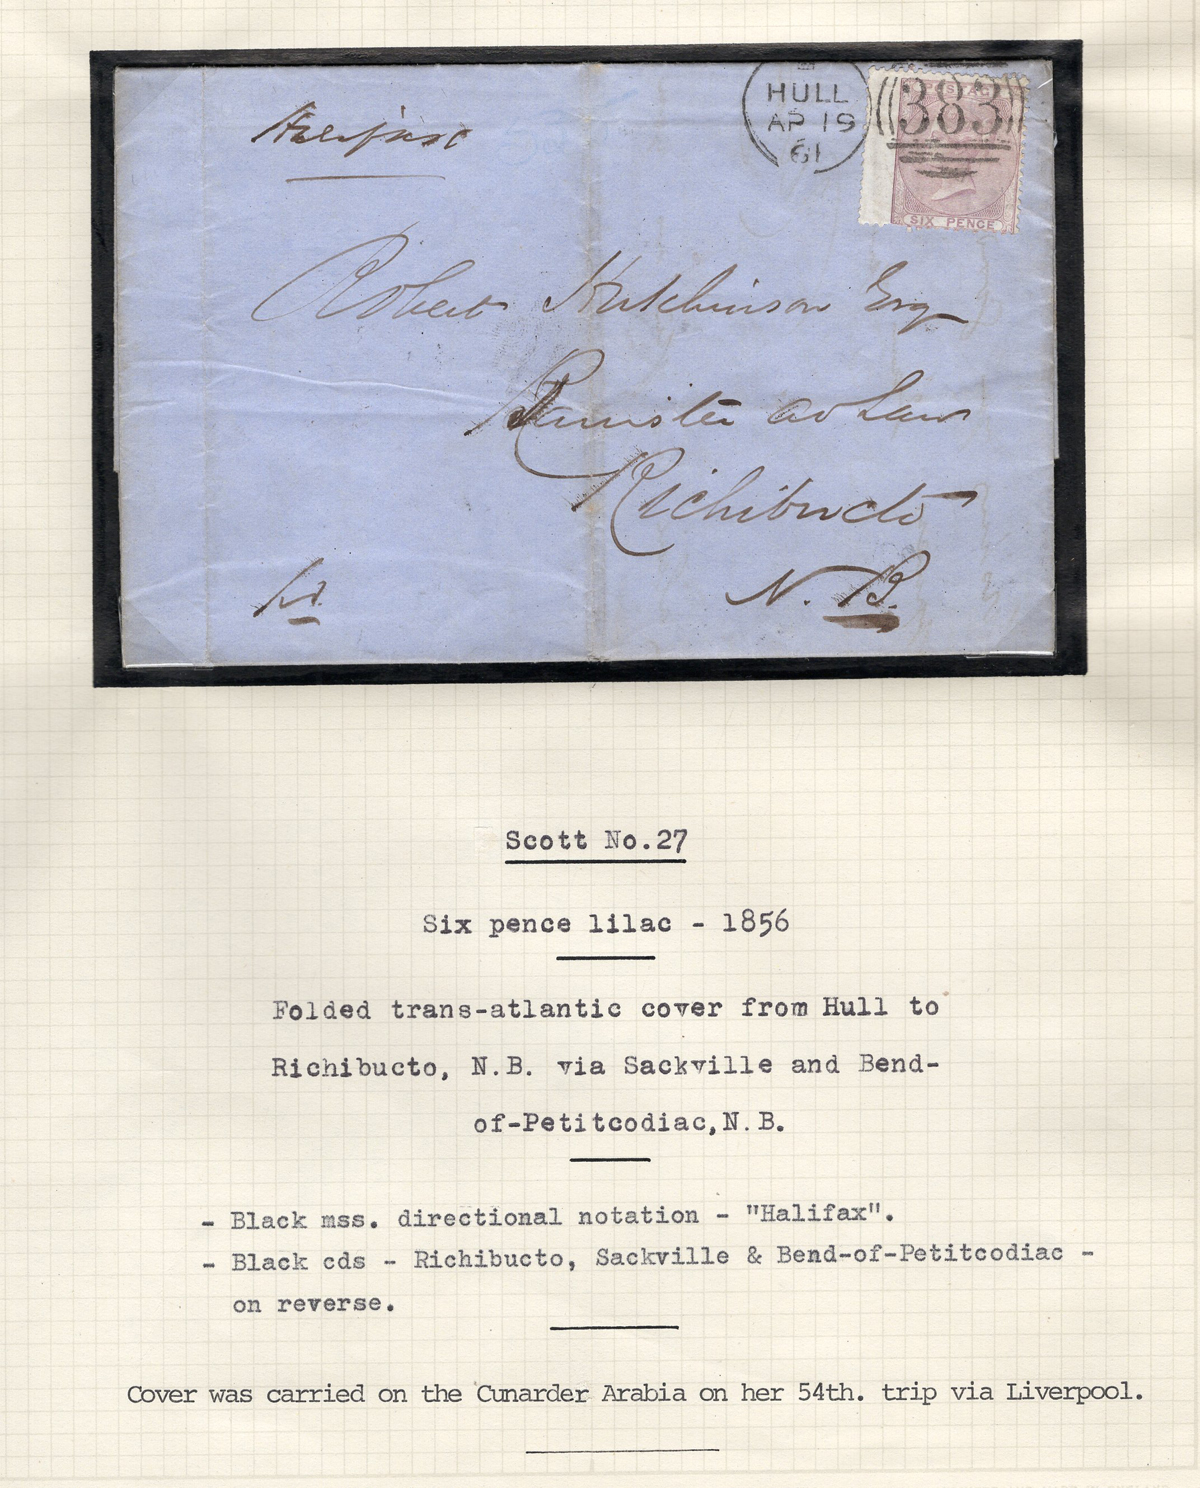 Halifax
HULL
AP 19
61
383
SIX PENCE
Robert Hutchinson Esq
Barrister at Law
Richibucto
N. B.
Scott No.27
Six pence lilac - 1856
Folded trans-atlantic cover from Hull to
Richibucto, N.B. via Sackville and Bend-
of-Petitcodiac,N.B.
- Black mss. directional notation - "Halifax".
- Black cds - Richibucto, Sackville & Bend-of-Petitcodiac -
on reverse.
Cover was carried on the Cunarder Arabia on her 54th. trip via Liverpool.